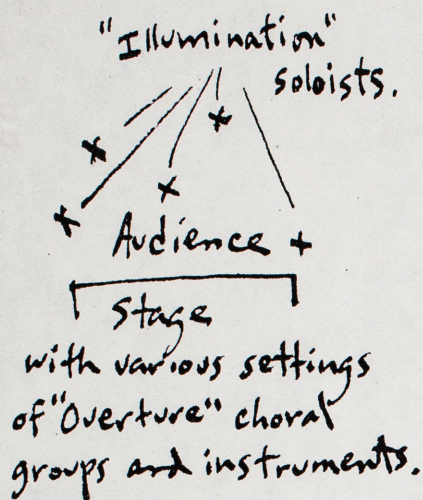 "Illumination"
soloists.
Audience
Stage
with various settings
of "Overture" choral
groups and instruments.